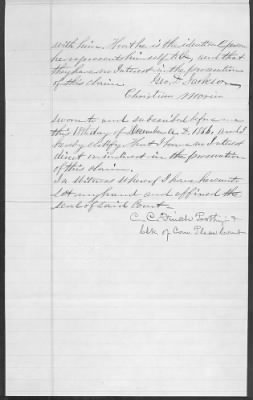 with him. that he is the identical person
he represents himself to be, and that
they have no Interest in the prosecution
of this claim.
Christian
sworn to and subscribed before me
this day of December A.D. 186, and I
hereby certify that I have no Interest
direct or indirect in the prosecution
of this claim.
In Witness Whereof I have hereunto
set my hand and affixed the
seal of said Court.
C. C.
Clk. of Com. Pleas Court